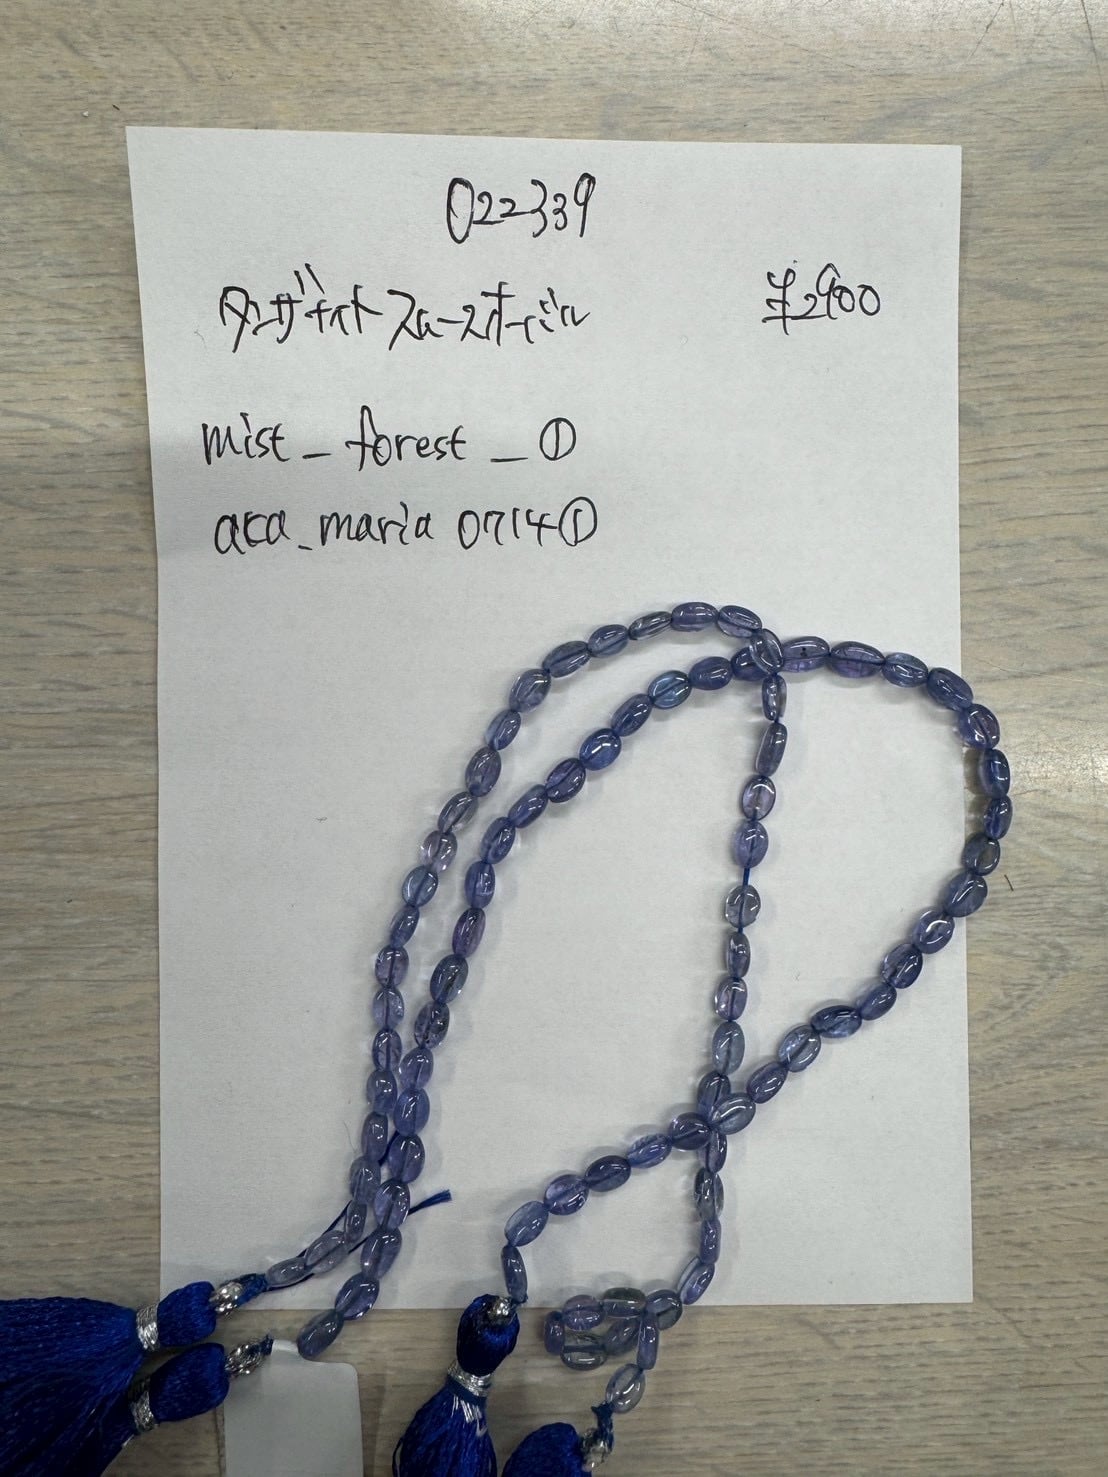 022339
タンザナイトスムースオーバル ¥2900
mist_forest_①
aca_maria 0714①